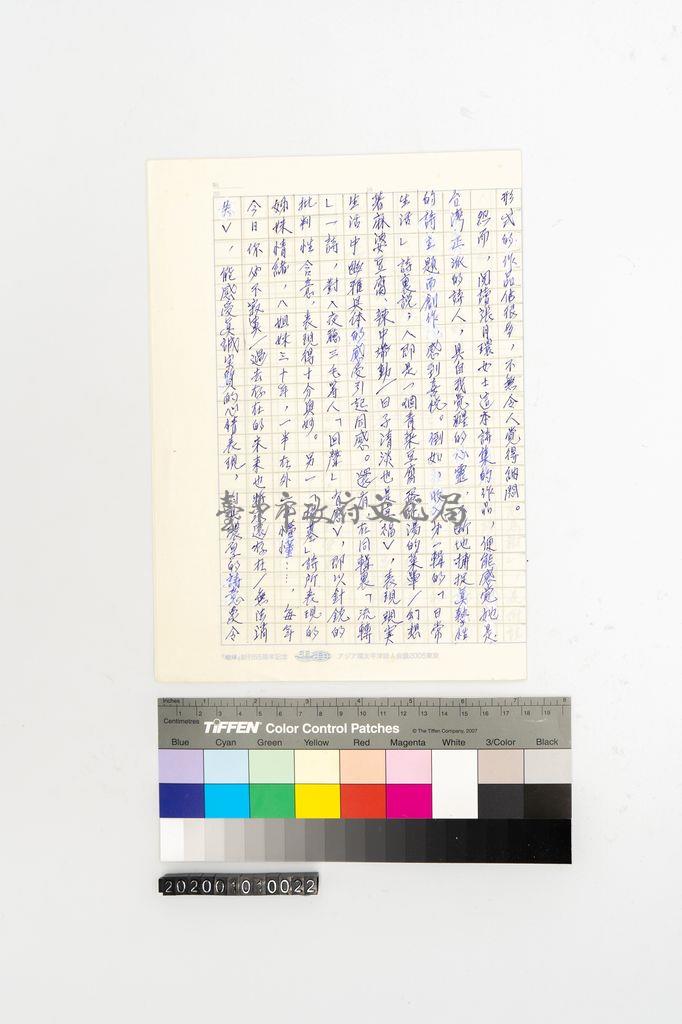 形式的作品佔很多，不無令人覺得納悶。
然而，閱讀張月環女士這本詩集的作品，便能感覺她是
台灣正派的詩人，具自我覺醒的心靈，斷地捕捉真摯性
的詩主題而創作，感到喜悅。例如，第一輯的「日常
生活」詩裏說；〈即是一個青菜豆腐蛋湯的菜單/幻想
著麻婆豆腐、辣中帶勁/日子清淡也是福〉，表現現實
生活中幽雅具体的感受引起同感。還有，在同輯裏「流轉
」一詩，對〈夜聽三毛等人「回聲」有感〉，即以針銳的
批判性含意，表現得十分奧妙。另一「詩所表現的
姊妹情緒，〈姐妹三十年，一半在外 懂懂……，每年
今日你必不寂寞/過去存在的未來也將永遠存在/無法消
失〉，能感受真誠實質的心情表現，別具很厚的詩意象令
「地球」創刊55周年記念 アジア環太平洋詩人会議2005東京
臺中市政府文化局
Inches 1 2 3 4 5 6 7 8
Centimetres 1 2 3 4 5 6 7 8 9 10 11 12 13 14 15 16 17 18 19
TIFFEN Color Control Patches © The Tiffen Company, 2007
Blue Cyan Green Yellow Red Magenta White 3/Color Black
20200 10 10022